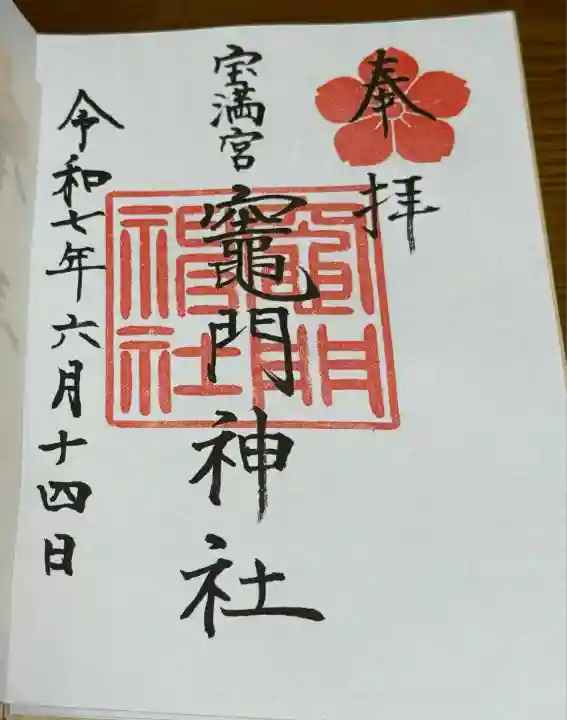 奉拝
宝満宮
竈門神社
竈門神社
令和七年六月十四日